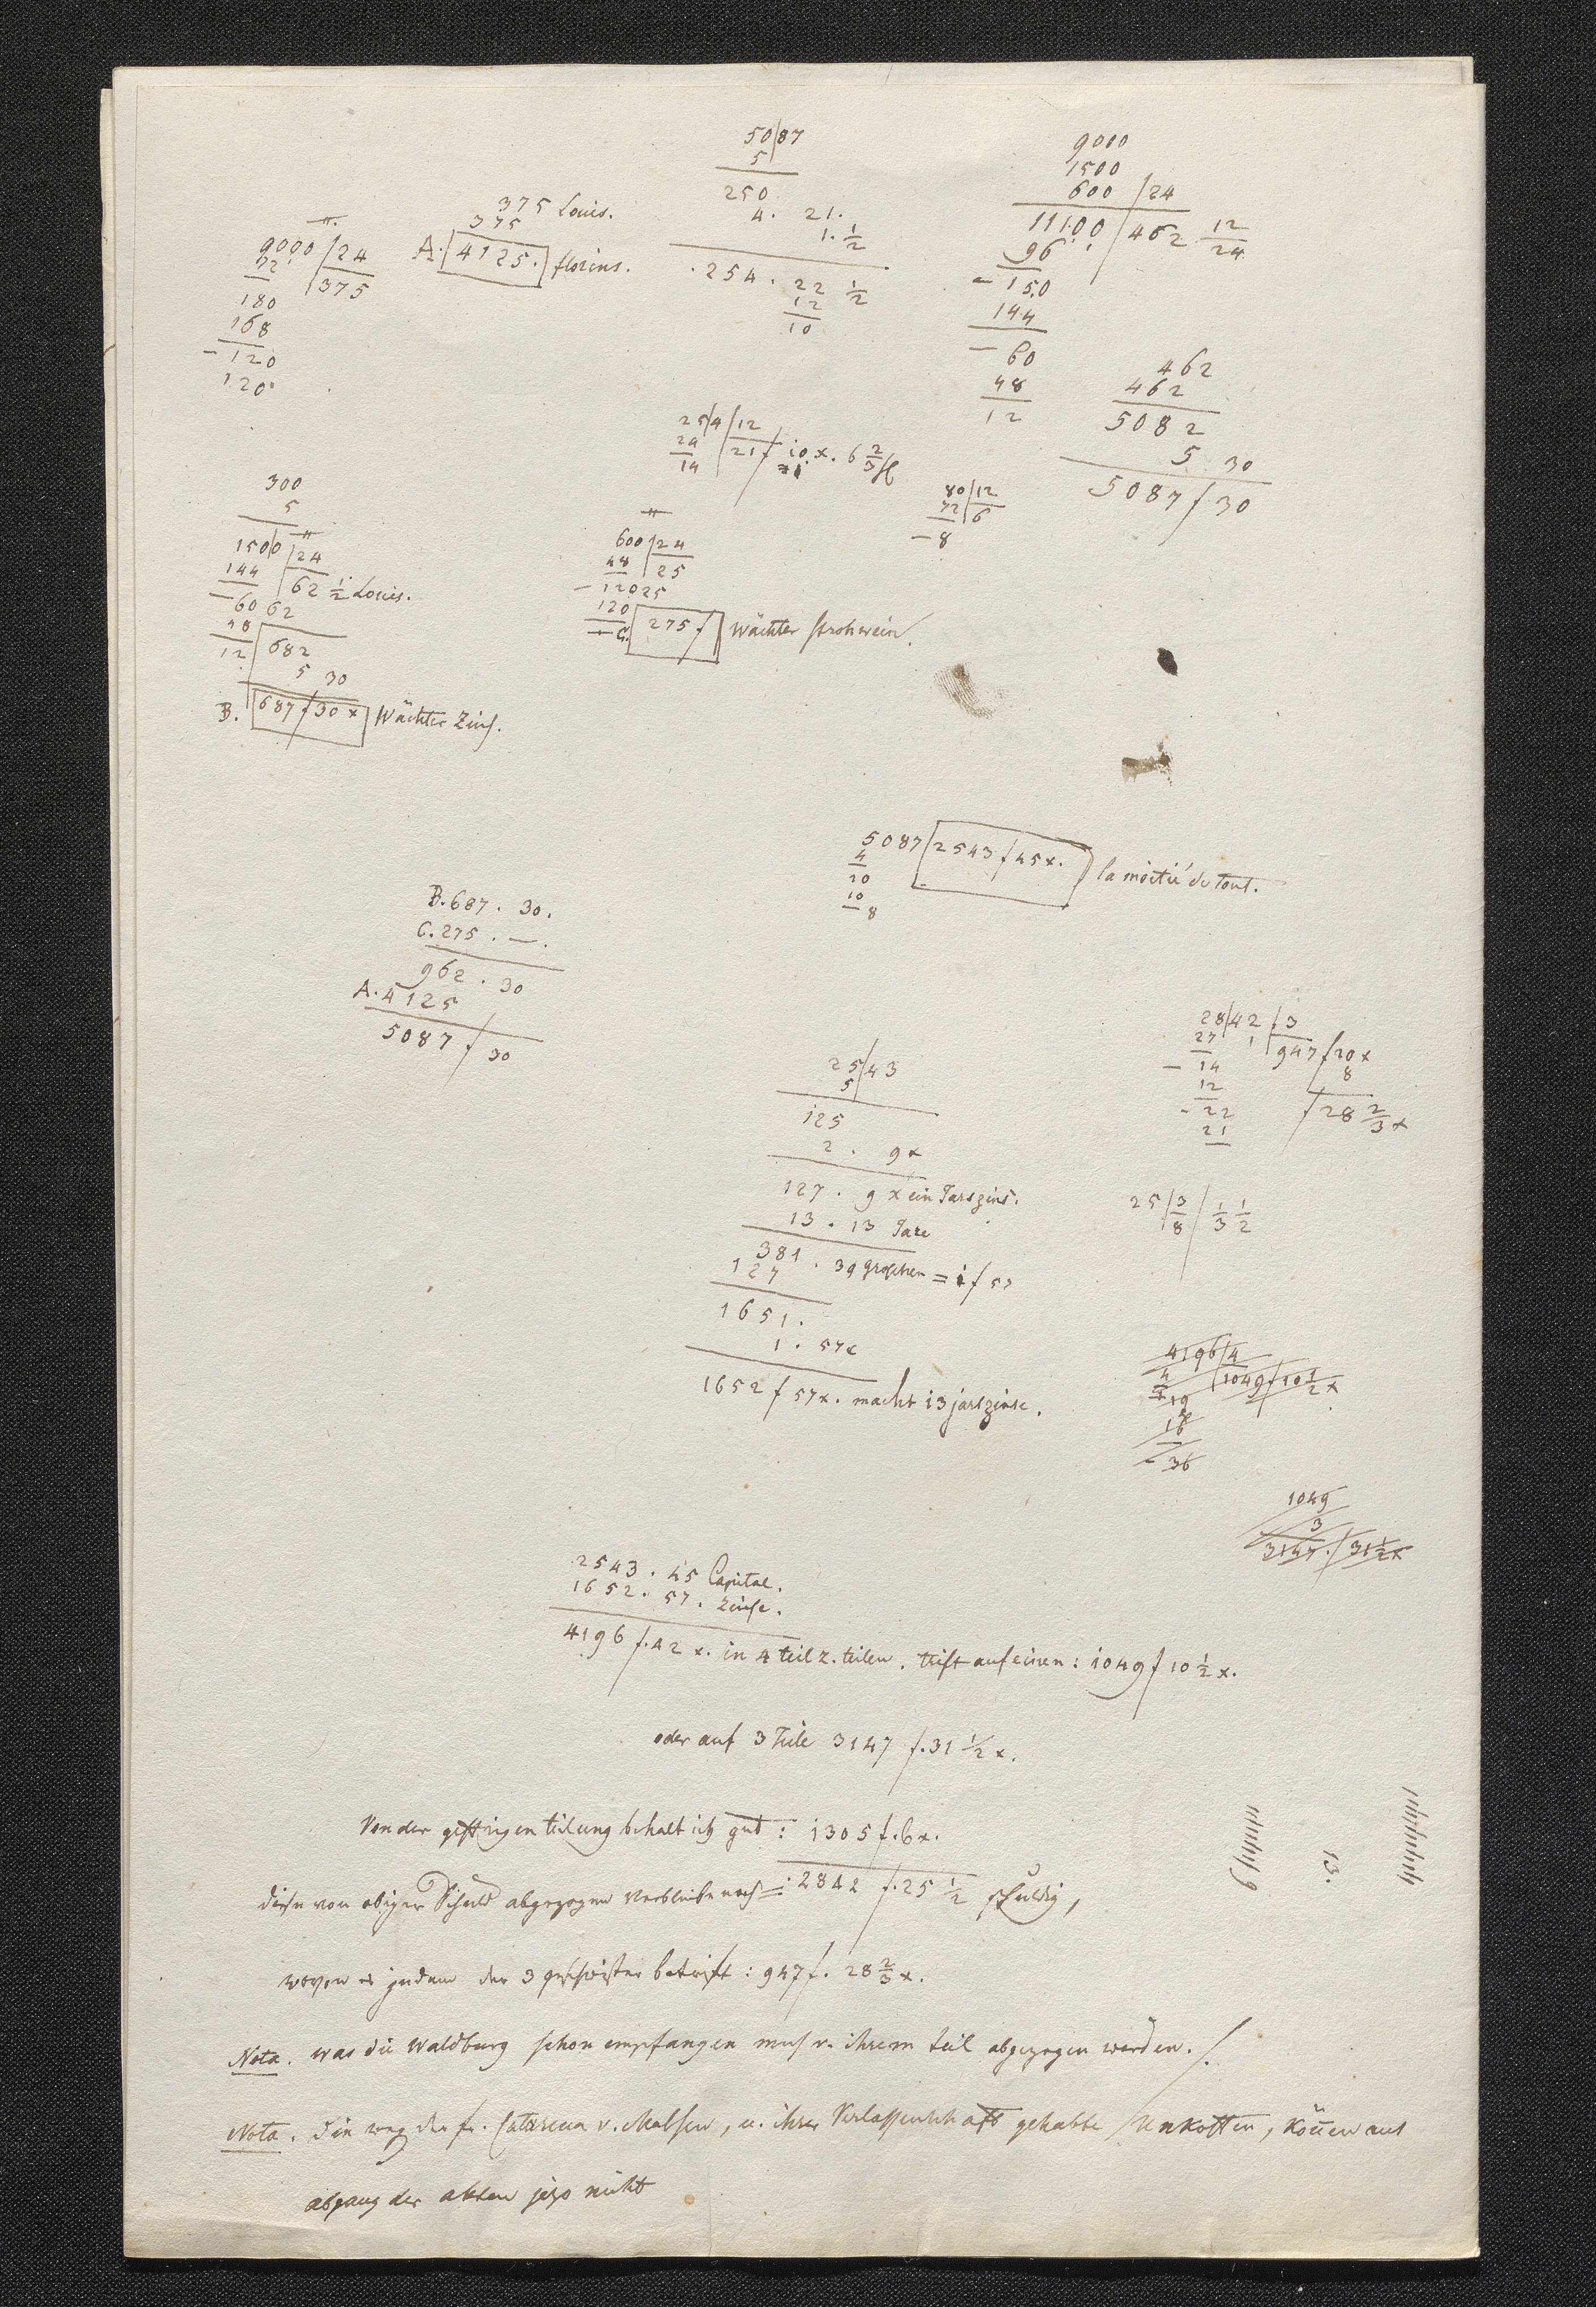 50|87
5
250
4. 21.
1. 1/2
.254. 22 1/2
12
10
9000
1500
600 | 24
11100 | 462 12/24
96
- 150
144
- 60
48
12
375 Louis.
375
A. 4125. florins.
9000 | 24
72 | 375
180
168
- 120
120
462
462
5082
5 30
5087 f 30
25|4 | 12
24 | 21 f 10 x. 6 2/3
14
80 | 12
72 | 6
- 8
300
5
1500 | 24
144 | 62 1/2 Louis.
- 60 62
48
12 | 682
5 30
B. 687 f 30 x Wächter Zins.
600 | 24
48 | 25
- 120 25
120
C. 275 f Wächter strohwein.
5087 | 2543 f 45 x. la moitié du tout.
4
10
10
- 8
B. 687. 30.
C. 275. —.
962. 30
A. 4125
5087 f 30
28|42 | 3
27 | 947 f 20 x
- 14 8
12 f 28 2/3 x
- 22
21
25|43
5
125
2. 9 x
127. 9 x ein Jarszins.
13. 13 Jare
381. 39 groschen = 1 f 57
127
1651.
1. 57 x
1652 f 57 x. macht 13 jarszinse.
25 | 3/8 | 1/3 1/2
4196 | 4
4 | 1049 f 10 1/2 x
19
16
- 36
1049
3
3147. f 31 1/2 x
2543. 45 Capital.
1652. 57. Zinse.
4196 f. 42 x. in 4 teil z. teilen. trift auf einen: 1049 f 10 1/2 x.
oder auf 3 Teile 3147 f. 31 1/2 x.
Von der gestrigen teilung behalt ich gut: 1305 f. 6 x.
diese von obiger Schuld abgezogen verbleibe noch =: 2842 f. 25 1/2 schuldig,
13.
9
wovon es jedem der 3 geschwister betrift: 947 f. 28 2/3 x.
Nota. was die Waldburg schon empfangen mus v. ihrem teil abgezogen werden. /.
Nota. die weg. der fr. Catarena v. Malsen, u. ihrer Verlassenschaft gehabte Unkosten, können aus
abgang der akten jezo nicht